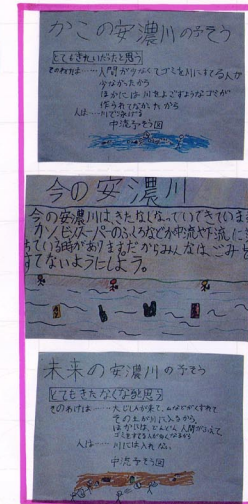 かこの安濃川の予そう
とてもきれいだったと思う
そのわけは……人間が少なくてゴミを川にすてる人が
少なかったから
ほかには川をよごすようなゴミが
作られてなかったから
人は……川であそべる
中流予そう図
今の安濃川
今の安濃川はきたなくなっていできています
カンビンスーパーのふくろなどが中流や下流に
ている時があります。だからみんなは、ごみを
すてないようにしよう。
未来の安濃川の予そう
とてもきたなくなると思う
そのわけは……大じしんが来て、山などがくずれて
その土が川に入るから
ほかには、どんどん人間がふえて、
ゴミをすてる人が多くなるから
人は……川には入れない
中流予そう図